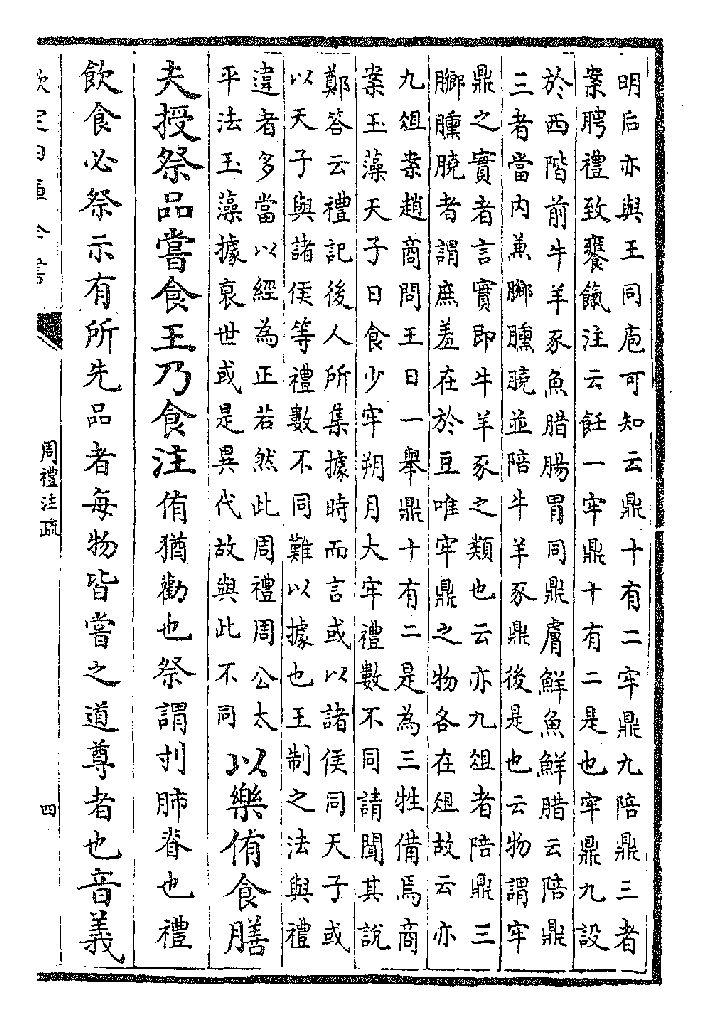 明后亦與王同庖可知云鼎十有二牢鼎九陪鼎三者
案聘禮致饔餼注云飪一牢鼎十有二是也牢鼎九設
於西階前牛羊豕魚腊腸胃同鼎膚鮮魚鮮腊云陪鼎
三者當内亷膷臐膮並陪牛羊豕鼎後是也云物謂牢
鼎之實者言實即牛羊豕之類也云亦九俎者陪鼎三
膷臐膮者謂庶羞在於豆唯牢鼎之物各在俎故云亦
九俎案趙商問王日一舉鼎十有二是為三牲備焉商
案玉藻天子日食少牢朔月大牢禮數不同請聞其說
鄭答云禮記後人所集據時而言或以諸侯同天子或
以天子與諸侯等禮數不同難以據也王制之法與禮
違者多當以經為正若然此周禮周公太
平法玉藻據衰世或是異代故與此不同
以樂侑食膳
夫授祭品嘗食王乃食注侑猶勸也祭謂刌肺脊也禮
飲食必祭示有所先品者每物皆嘗之道尊者也音義
欽定四庫全書
周禮注疏
四